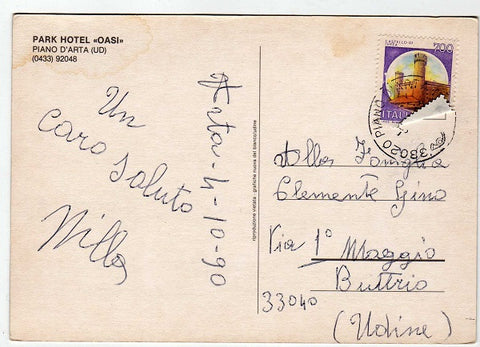 PARK HOTEL «OASI»
PIANO D'ARTA (UD)
(0433) 92048
Arta-4-10-90
Un
caro saluto
Nilla
riproduzione vietata - grafiche nuova del bianco/udine
700
ITALIA
33020 PIANO
Alla Famiglia
Clemente Gino
Via 1° Maggio
33040 Buttrio
(Udine)